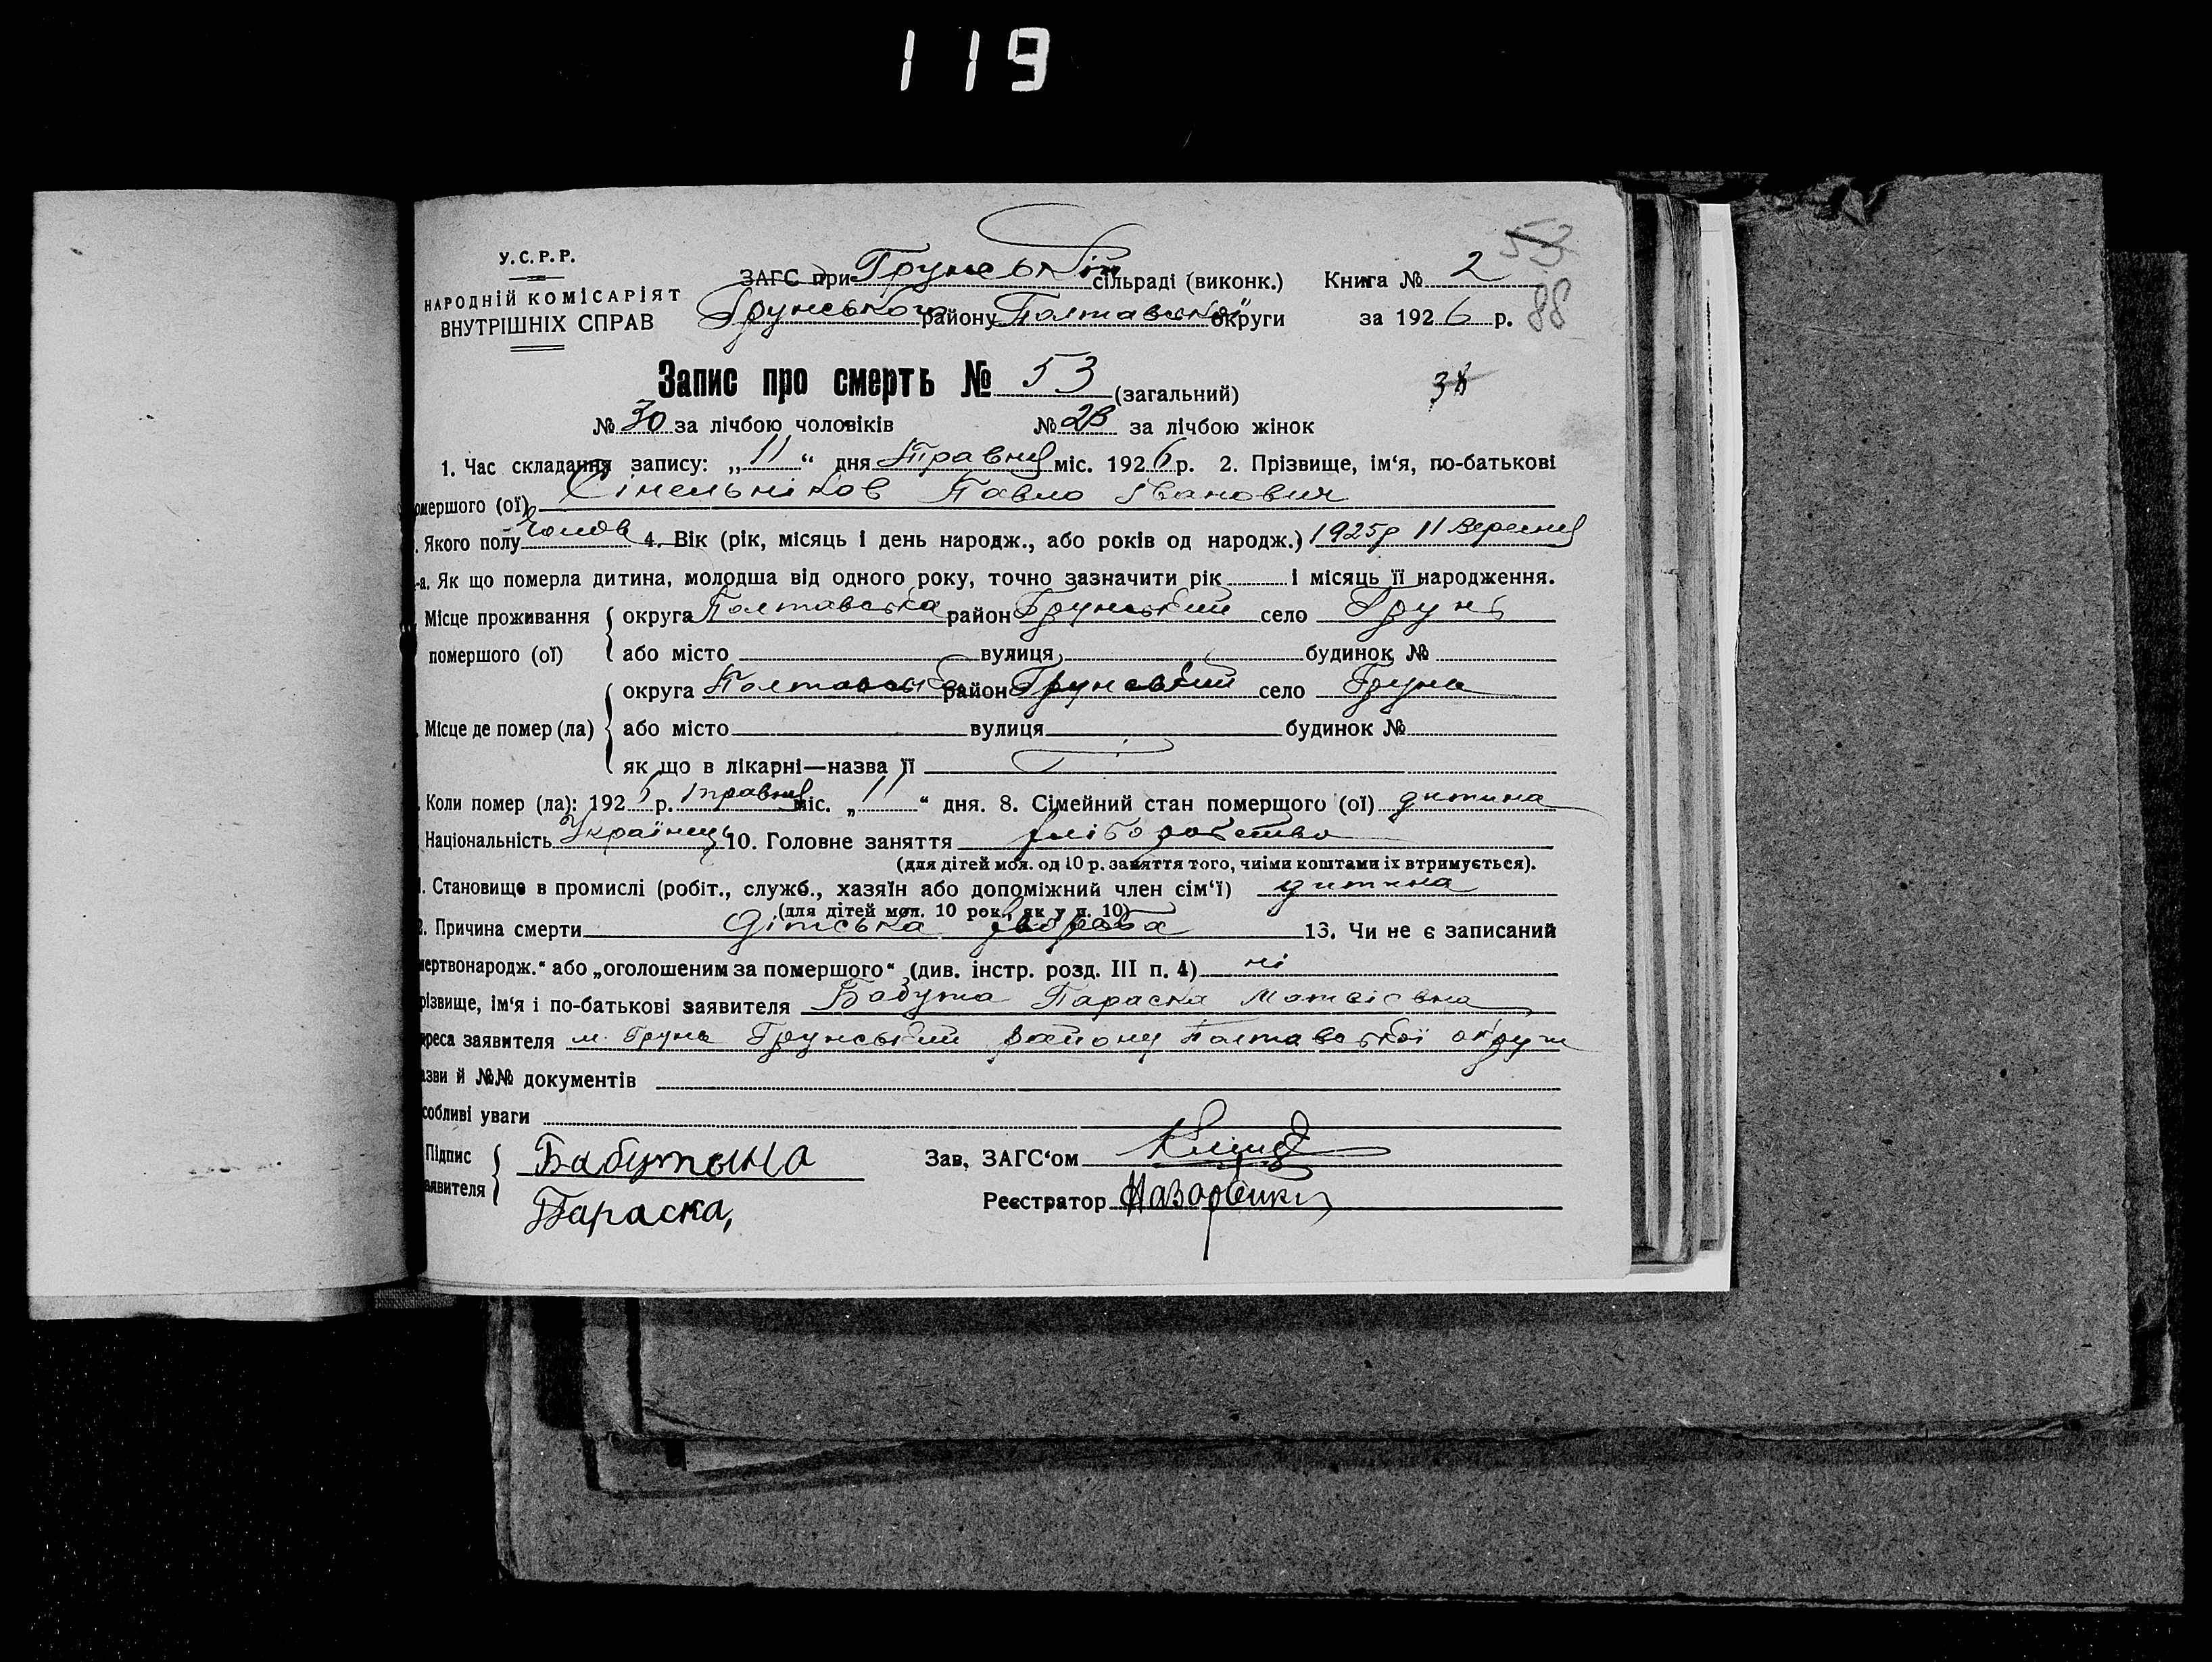 119
У.С.Р.Р.
НАРОДНІЙ КОМІСАРІЯТ
ВНУТРІШНІХ СПРАВ
ЗАГС при Грунській сільраді (виконк.) Книга № 2
53
Грунського району Полтавської округи за 1926 р. 88
Запис про смерть № 53 (загальний)
38
№ 30 за лічбою чоловіків № 23 за лічбою жінок
1. Час складання запису: „11“ дня Травня міс. 1926 р. 2. Прізвище, ім‘я, по-батькові
омершого (ої) Сінельніков Павло Іванович
. Якого полу чолов 4. Вік (рік, місяць і день народж., або років од народж.) 1925р 11 Вересня
-а. Як що померла дитина, молодша від одного року, точно зазначити рік і місяць її народження.
Місце проживання округа Полтавська район Грунський село Грунь
помершого (ої) або місто вулиця будинок №
округа Полтавська район Грунський село Грунь
Місце де помер (ла) або місто вулиця будинок №
як що в лікарні—назва її
. Коли помер (ла): 1926 р. травня міс. „11“ дня. 8. Сімейний стан помершого (ої) дитина
Національність Українець 10. Головне заняття хліборобство
(для дітей мол. од 10 р. заняття того, чиїми коштами їх втримується).
1. Становище в промислі (робіт., служб., хазяїн або допоміжний член сім‘ї) дитина
(для дітей мол. 10 рок., як у п. 10)
2. Причина смерти дітська хвороба 13. Чи не є записаний
мертвонародж.“ або „оголошеним за помершого“ (див. інстр. розд. III п. 4) ні
різвище, ім‘я і по-батькові заявителя Бабута Параска Матвієвна
дреса заявителя м. Грунь Грунський району Полтавської округи
азви й №№ документів
собливі уваги
Підпис
аявителя
Бабутына
Параска,
Зав. ЗАГС‘ом
Реєстратор Назаренки